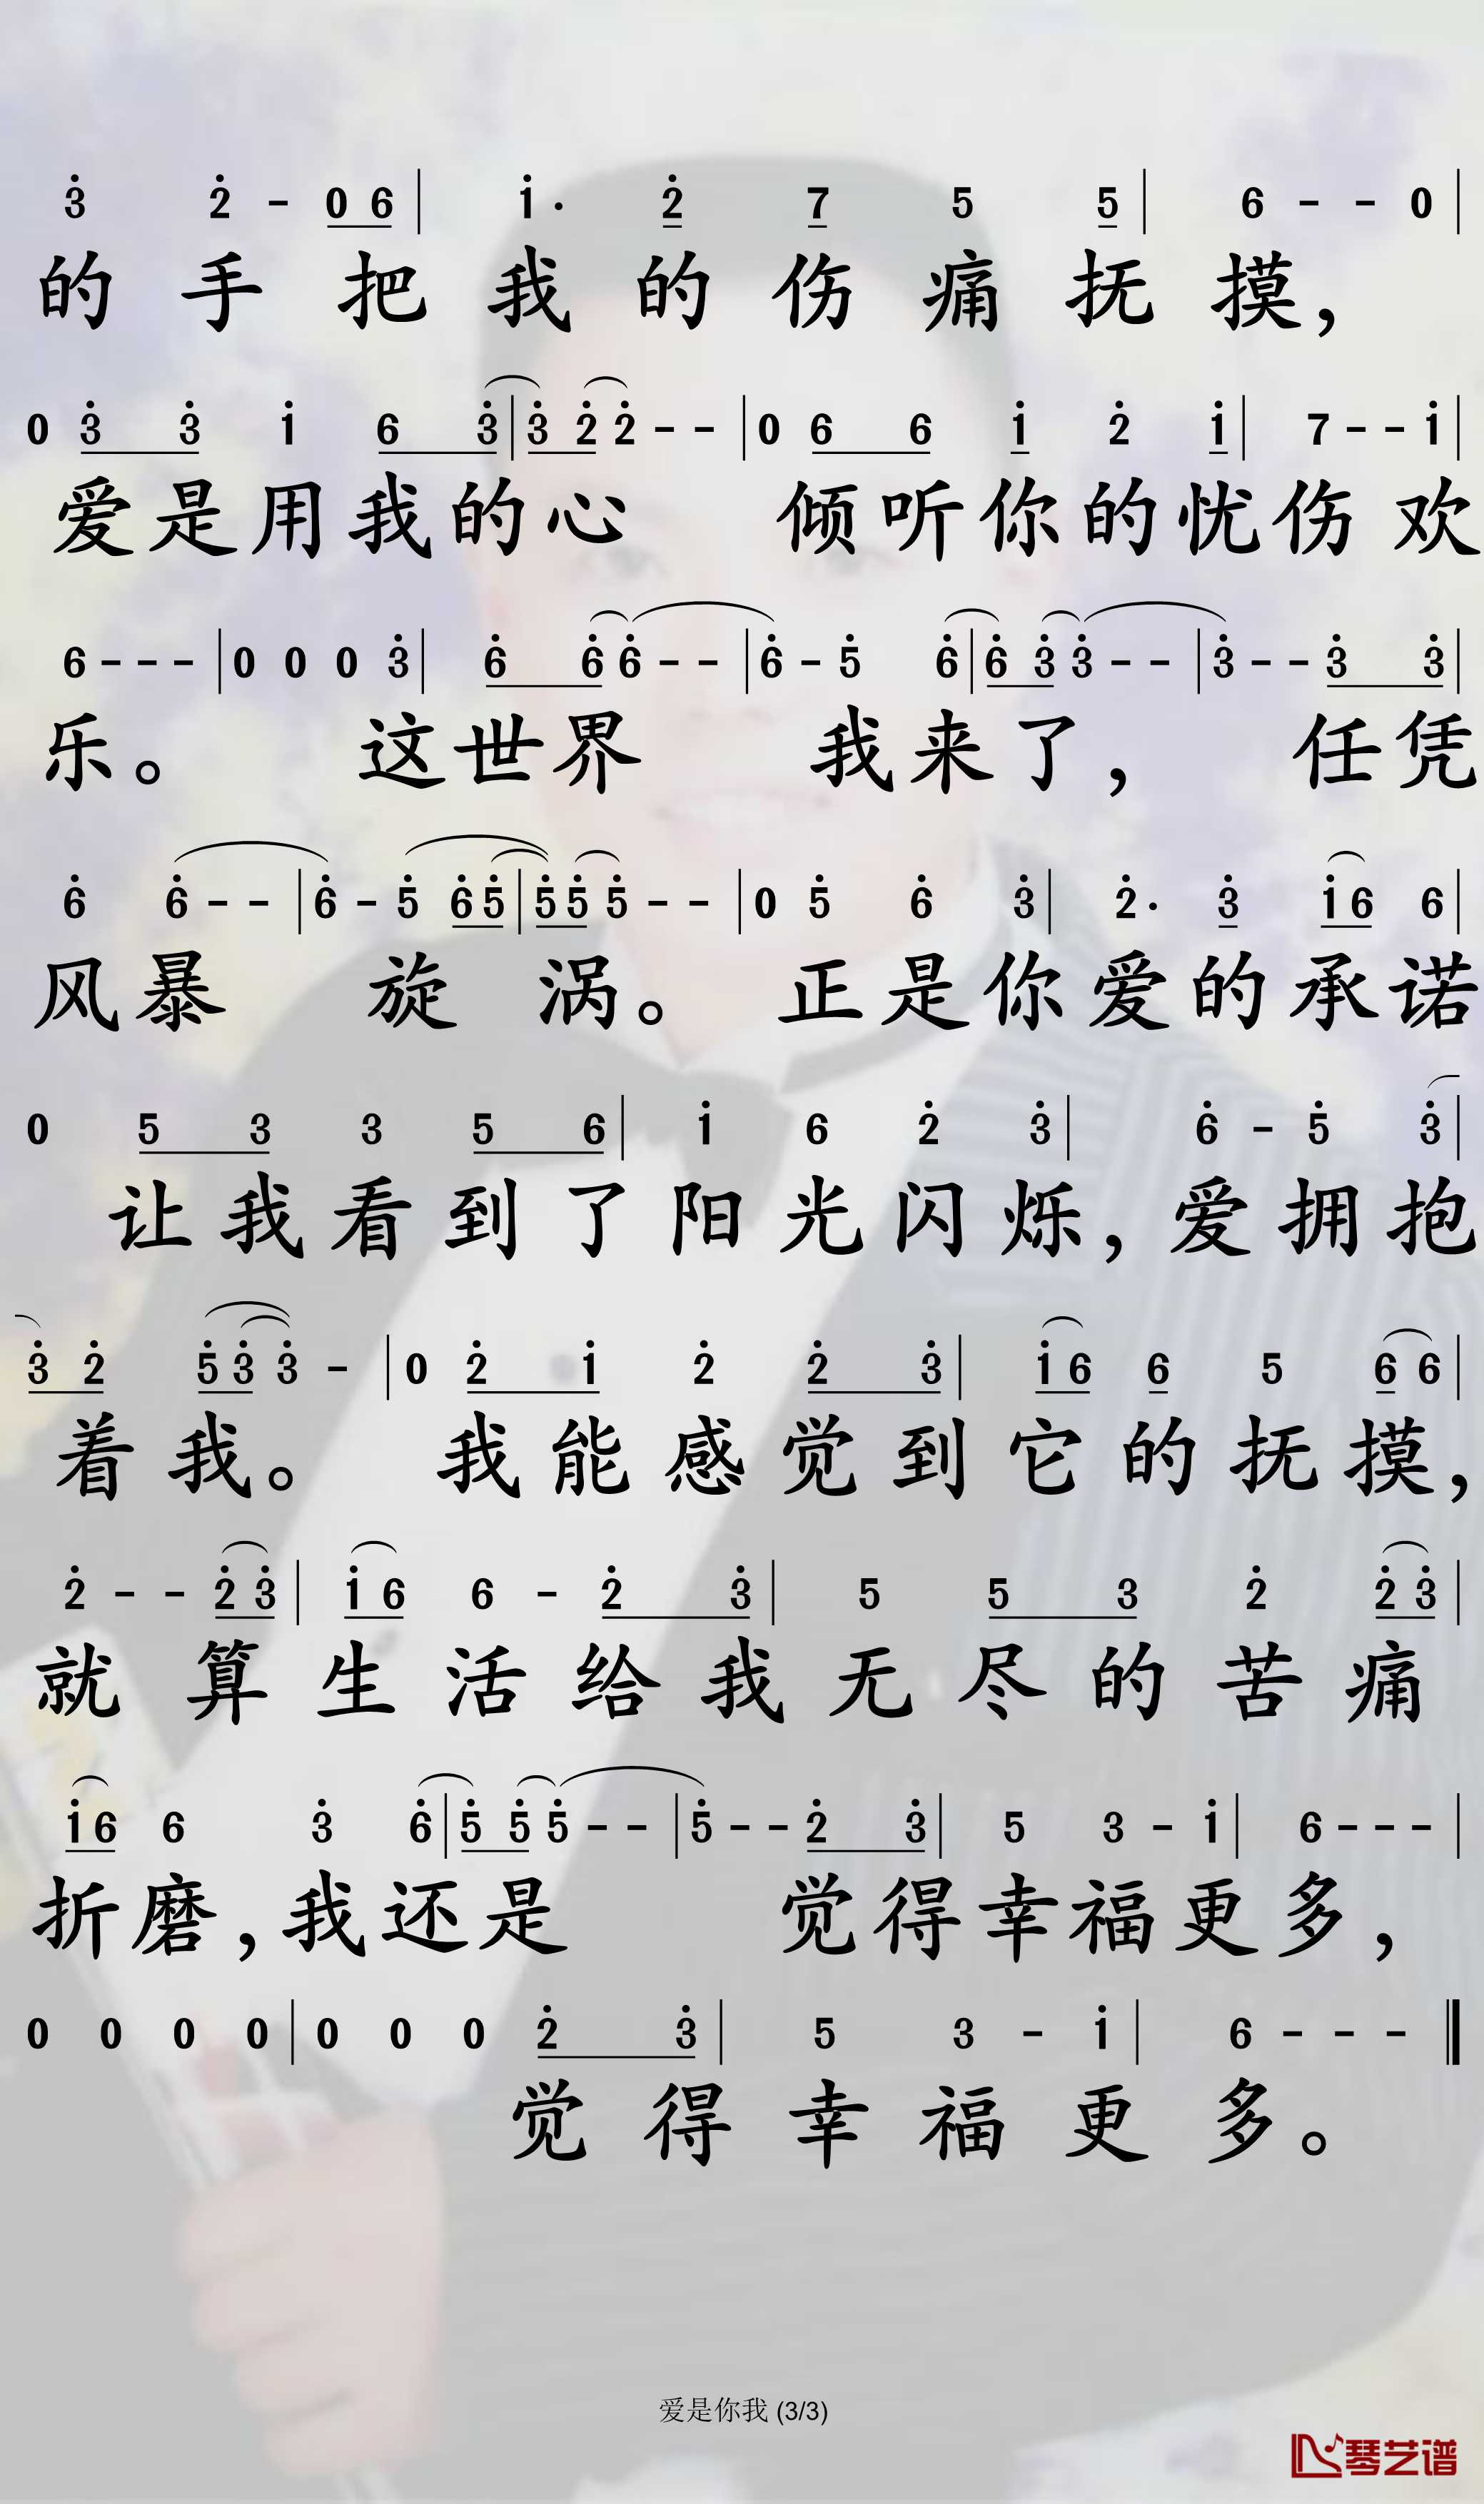 3 2 - 0 6 | 1 · 2 7 5 5 | 6 - - 0 |
的手把我的伤痛抚摸，
0 3 3 1 6 3 | 3 2 2 - - | 0 6 6 1 2 1 | 7 - - 1 |
爱是用我的心 倾听你的忧伤欢
6 - - - | 0 0 0 3 | 6 6 6 - - | 6 - 5 6 | 6 3 3 - - | 3 - - 3 3 |
乐。 这世界 我来了， 任凭
6 6 - - | 6 - 5 6 5 | 5 5 5 - - | 0 5 6 3 | 2 · 3 1 6 6 |
风暴 旋 涡。 正是你爱的承诺
0 5 3 3 5 6 | 1 6 2 3 | 6 - 5 3 |
让我看到了阳光闪烁，爱拥抱
3 2 5 3 3 - | 0 2 1 2 2 3 | 1 6 6 5 6 6 |
着我。 我能感觉到它的抚摸，
2 - - 2 3 | 1 6 6 - 2 3 | 5 5 3 2 2 3 |
就算生活给我无尽的苦痛
1 6 6 3 6 | 5 5 5 - - | 5 - - 2 3 | 5 3 - 1 | 6 - - - |
折磨，我还是 觉得幸福更多，
0 0 0 0 | 0 0 0 2 3 | 5 3 - 1 | 6 - - -
觉得幸福更多。
爱是你我 (3/3)
琴艺谱